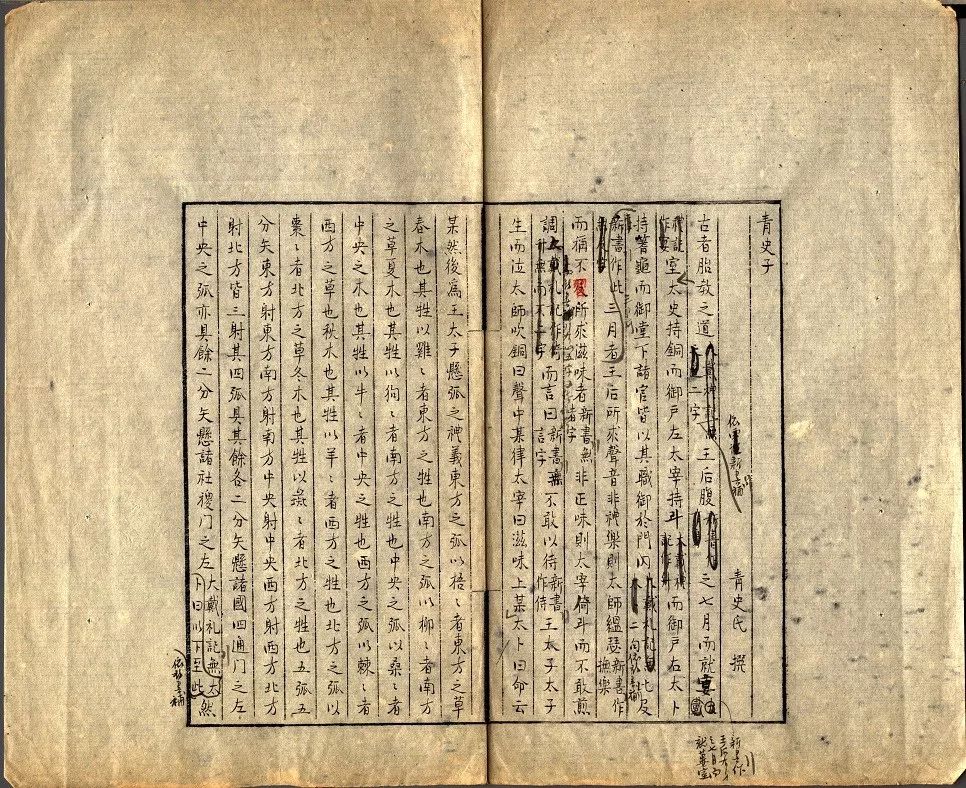 青史子
青史氏 撰
古者胎教之道王后腹之七月而就
室太史持銅而御戶左太宰持斗而御戶右太卜
持蓍龜而御堂下諸官皆以其職御於門內比及
三月者王后所求聲音非禮樂則太師縕瑟
而稱不習所求滋味者新書無者字非正味則太宰倚斗而不敢煎
調而言曰新書無言字不敢以待新書作侍王太子太子
生而泣太師吹銅曰聲中某律太宰曰滋味上某太卜曰命云
某然後為王太子懸弧之禮義東方之弧以梧〻者東方之草
春木也其牲以雞〻者東方之牲也南方之弧以柳〻者南方
之草夏木也其牲以狗〻者南方之牲也中央之弧以桑〻者
中央之木也其牲以牛〻者中央之牲也西方之弧以棘〻者
西方之草也秋木也其牲以羊〻者西方之牲也北方之弧以
棗〻者北方之草冬木也其牲以彘〻者北方之牲也五弧五
分矢東方射東方南方射南方中央射中央西方射西方北方
射北方皆三射其四弧具其餘各二分矢懸諸國四通門之左
中央之弧亦具餘二分矢懸諸社稷門之左大戴礼記無太卜曰以下至此然